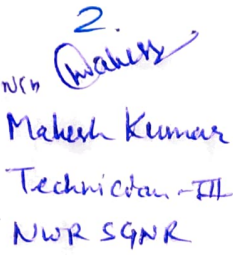 2.
Mahesh
Mahesh Kumar
Technician-III
NWR SGNR